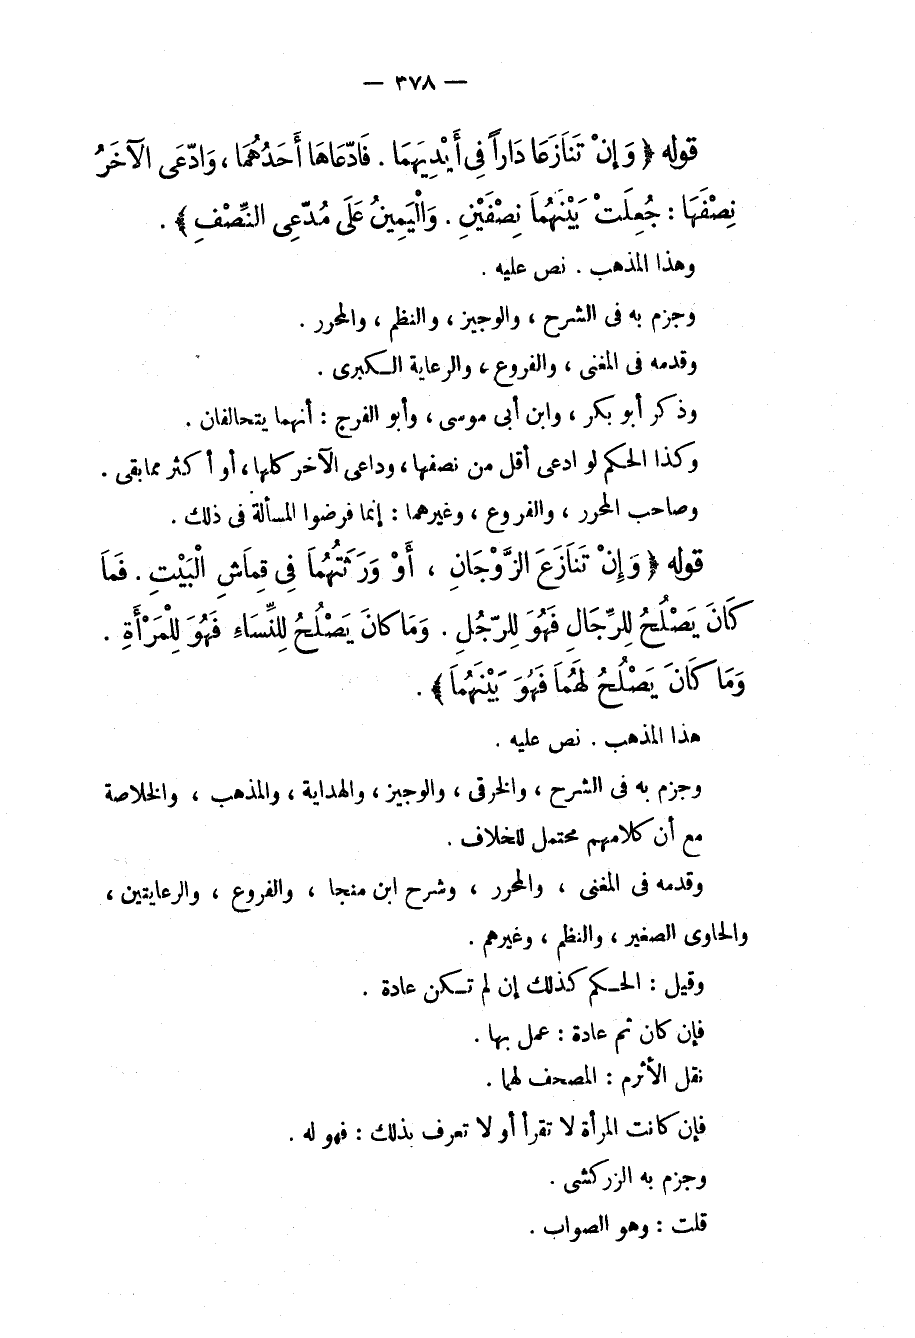 — ٣٧٨ —
قوله ﴿ وَإِنْ تَنَازَعَا دَاراً فِى أَيْدِيَهِمَا . فَادّعَاهَا أَحَدُهُمَا ، وَادّعَى الآخَرُ
نِصْفَهَا : جُعِلَتْ بَيْنَهُمَا نِصْفَيْنِ . وَالْيَمِينُ عَلَى مُدّعِى النِّصْفِ ﴾ .
وهذا المذهب . نص عليه .
وجزم به فى الشرح ، والوجيز ، والنظم ، والمحرر .
وقدمه فى المغنى ، والفروع ، والرعاية الـكبرى .
وذكر أبو بكر ، وابن أبى موسى ، وأبو الفرج : أنهما يتحالفان .
وكذا الحكم لو ادعى أقل من نصفها ، وداعى الآخر كلها ، أو أكثر مما بقى .
وصاحب المحرر ، والفروع ، وغيرهما : إنما فرضوا المسألة فى ذلك .
قوله ﴿ وَإِنْ تَنَازَعَ الزَّوْجَانِ ، أَوْ وَرَثَتُهُمَا فِى قِمَاشِ الْبَيْتِ . فَمَا
كَانَ يَصْلُحُ لِلرِّجَالِ فَهُوَ لِلرّجُلِ . وَمَا كانَ يَصْلُحُ لِلنِّسَاءِ فَهُوَ لِلْمَرْأَةِ .
وَمَا كَانَ يَصْلُحُ لَهُمَا فَهُوَ بَيْنَهُمَا ﴾ .
هذا المذهب . نص عليه .
وجزم به فى الشرح ، والخرقى ، والوجيز ، والهداية ، والمذهب ، والخلاصة
مع أن كلامهم محتمل للخلاف .
وقدمه فى المغنى ، والمحرر ، وشرح ابن منجا ، والفروع ، والرعايتين ،
والحاوى الصغير ، والنظم ، وغيرهم .
وقيل : الحـكم كذلك إن لم تـكن عادة .
فإن كان ثم عادة : عمل بها .
نقل الأثرم : المصحف لهما .
فإن كانت المرأة لا تقرأ أو لا تعرف بذلك : فهو له .
وجزم به الزركشى .
قلت : وهو الصواب .